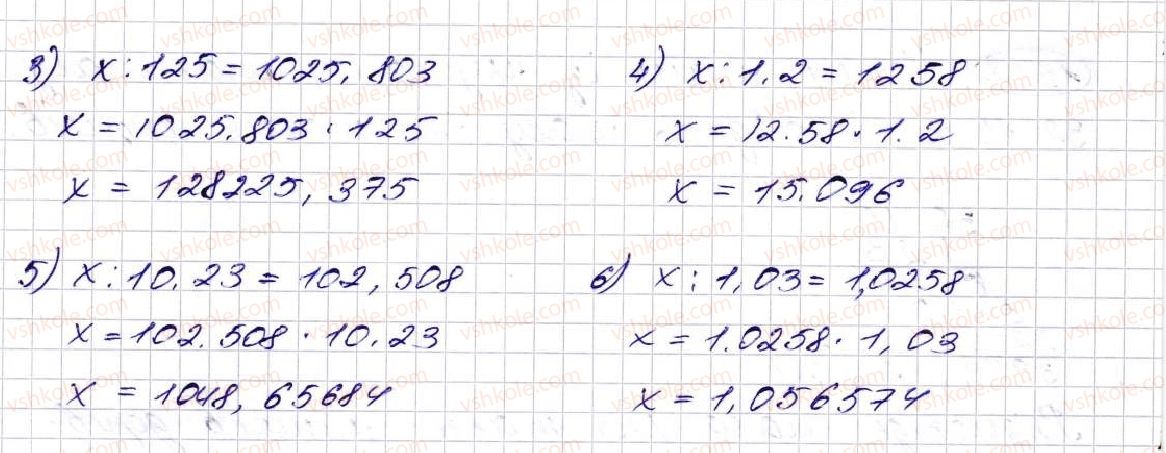 3) x : 125 = 1025,803
x = 1025.803 · 125
x = 128225,375
4) x : 1.2 = 1258
x = 12.58 · 1.2
x = 15.096
5) x : 10.23 = 102,508
x = 102.508 · 10.23
x = 1048,65684
6) x : 1,03 = 1,0258
x = 1.0258 · 1,03
x = 1,056574
vshkole.com